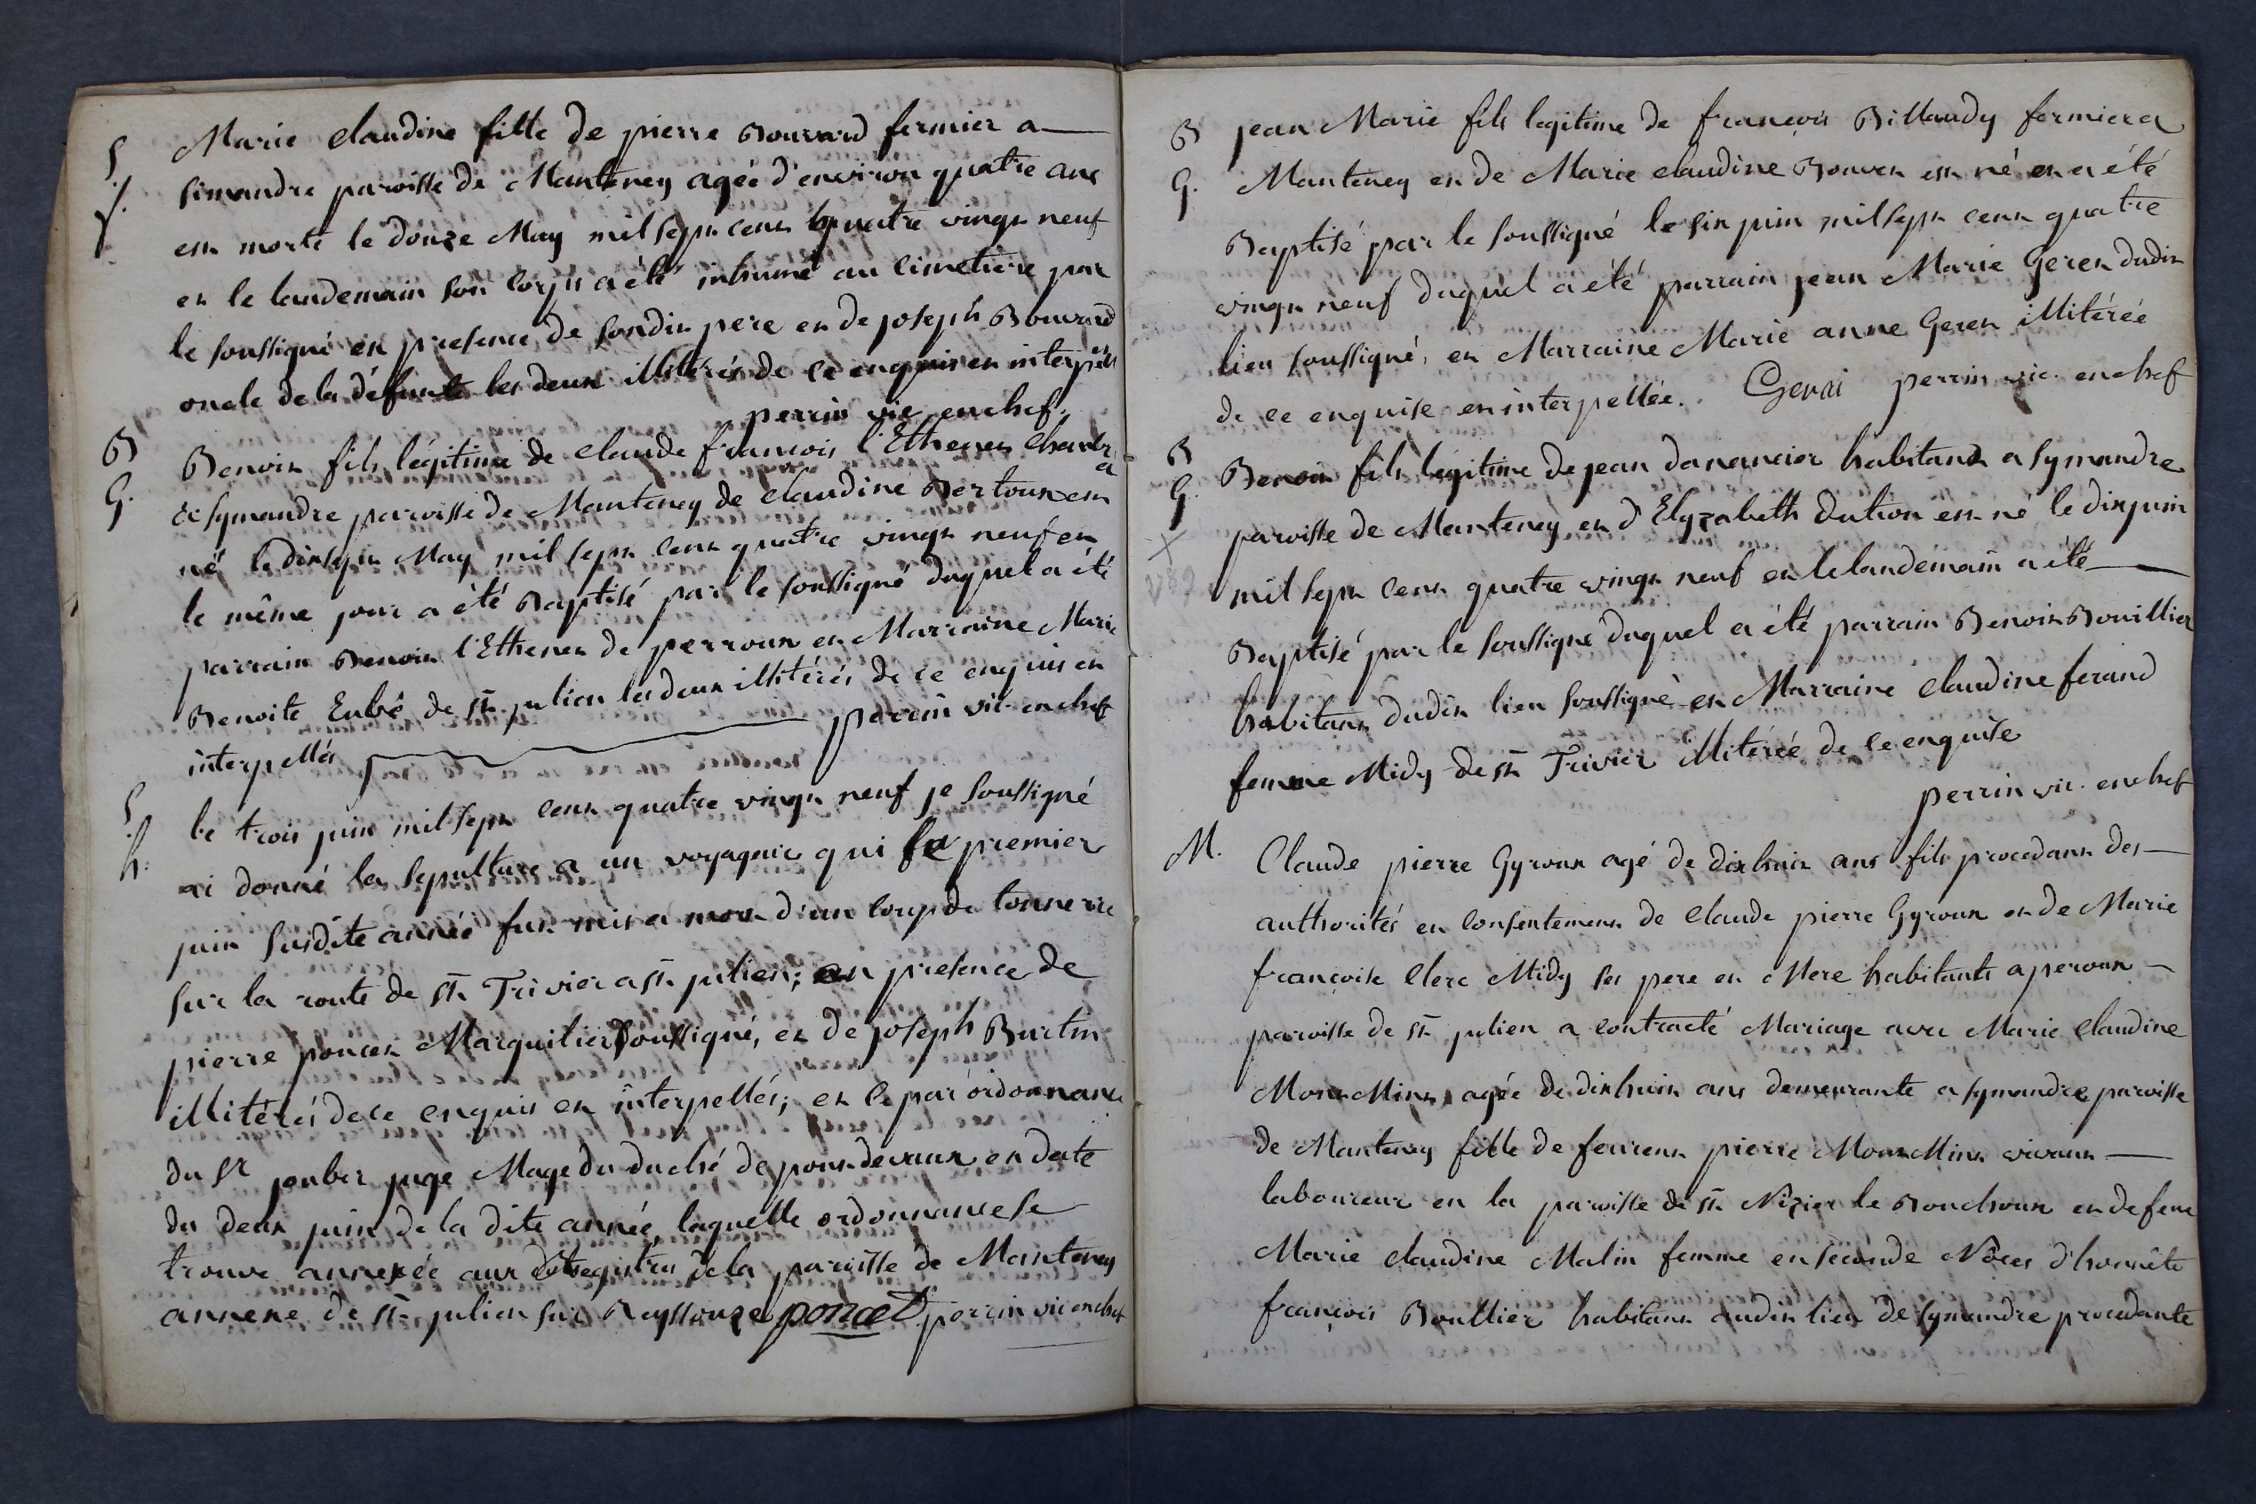 S.
f.
Marie claudine fille de pierre Bouvard fermier a
simandre paroisse de Manteney agée d'environ quatre ans
est morte le douze May mil sept cent quatre vingt neuf
et le landemain son corps a été inhumé au cimetiere par
le soussigné en presence de sondit pere et de joseph Bouvard
oncle de la défunte les deux illitérés de ce enquis et interpellés
perrin vic. en chef.
B
G.
Benoit fils légitime de claude francois l'Ethenet
a symandre paroisse de Manteney de claudine Bertoux est
né le dixsept May mil sept cent quatre vingt neuf et
le même jour a été Baptisé par le soussigné duquel a été
parrain Benoit l'Ethenet de perroux et Marraine Marie
Benoite Eubé de st julien les deux illitérés de ce enquis et
interpellés perrin vic. en chef
S.
h.
le trois juin mil sept cent quatre vingt neuf je soussigné
ai donné la sepulture a un voyageur qui le premier
juin susdite année fut mis a mort d'un coup de tonnerre
sur la route de st Trivier a st julien; en presence de
pierre poncet Marguilier soussigné, et de joseph Burtin
illitérés de ce enquis et interpellés; et ce par ordonnance
du sr joubert juge Mage du duché de pontdevaux en date
du deux juin de la dite année, laquelle ordonnance se
trouve annexée aux registres de la paroisse de Manteney
annexe de st julien sur Reyssouze poncet perrin vic en chef
B
G.
jean Marie fils legitime de francois Billaudy fermier a
Manteney et de Marie claudine Bouvet est né et a été
Baptisé par le soussigné le six juin mil sept cent quatre
vingt neuf duquel a été parrain jean Marie Geret dudit
lieu soussigné, et Marraine Marie anne Geret illitérée
de ce enquise et interpellée. perrin vic. en chef
B
G.
Benoit fils légitime de jean danancier habitant a symandre
paroisse de Manteney et d'Elyzabeth dution est né le dix juin
mil sept cent quatre vingt neuf et le landemain a été
Baptisé par le soussigné duquel a été parrain Benoit Bouillier
habitant dudit lieu soussigné et Marraine claudine ferand
femme Midy de st Trivier illitérée de ce enquise
perrin vic. en chef
M.
Claude pierre Gyroux agé de dixhuit ans fils procedant des
authorités et consentement de claude pierre Gyroux et de Marie
françoise Clerc Midy ses pere et Mere habitants a peroux
paroisse de st julien a contracté Mariage avec Marie claudine
MontMin agée de dixhuit ans demeurante a symandre paroisse
de Manteney fille de pierre MontMin vivant
laboureur en la paroisse de st Nizier le Bouchoux et de feue
Marie claudine Malin femme en seconde Nôces d'honnête
françois Boullier habitant audit lieu de symandre procedante